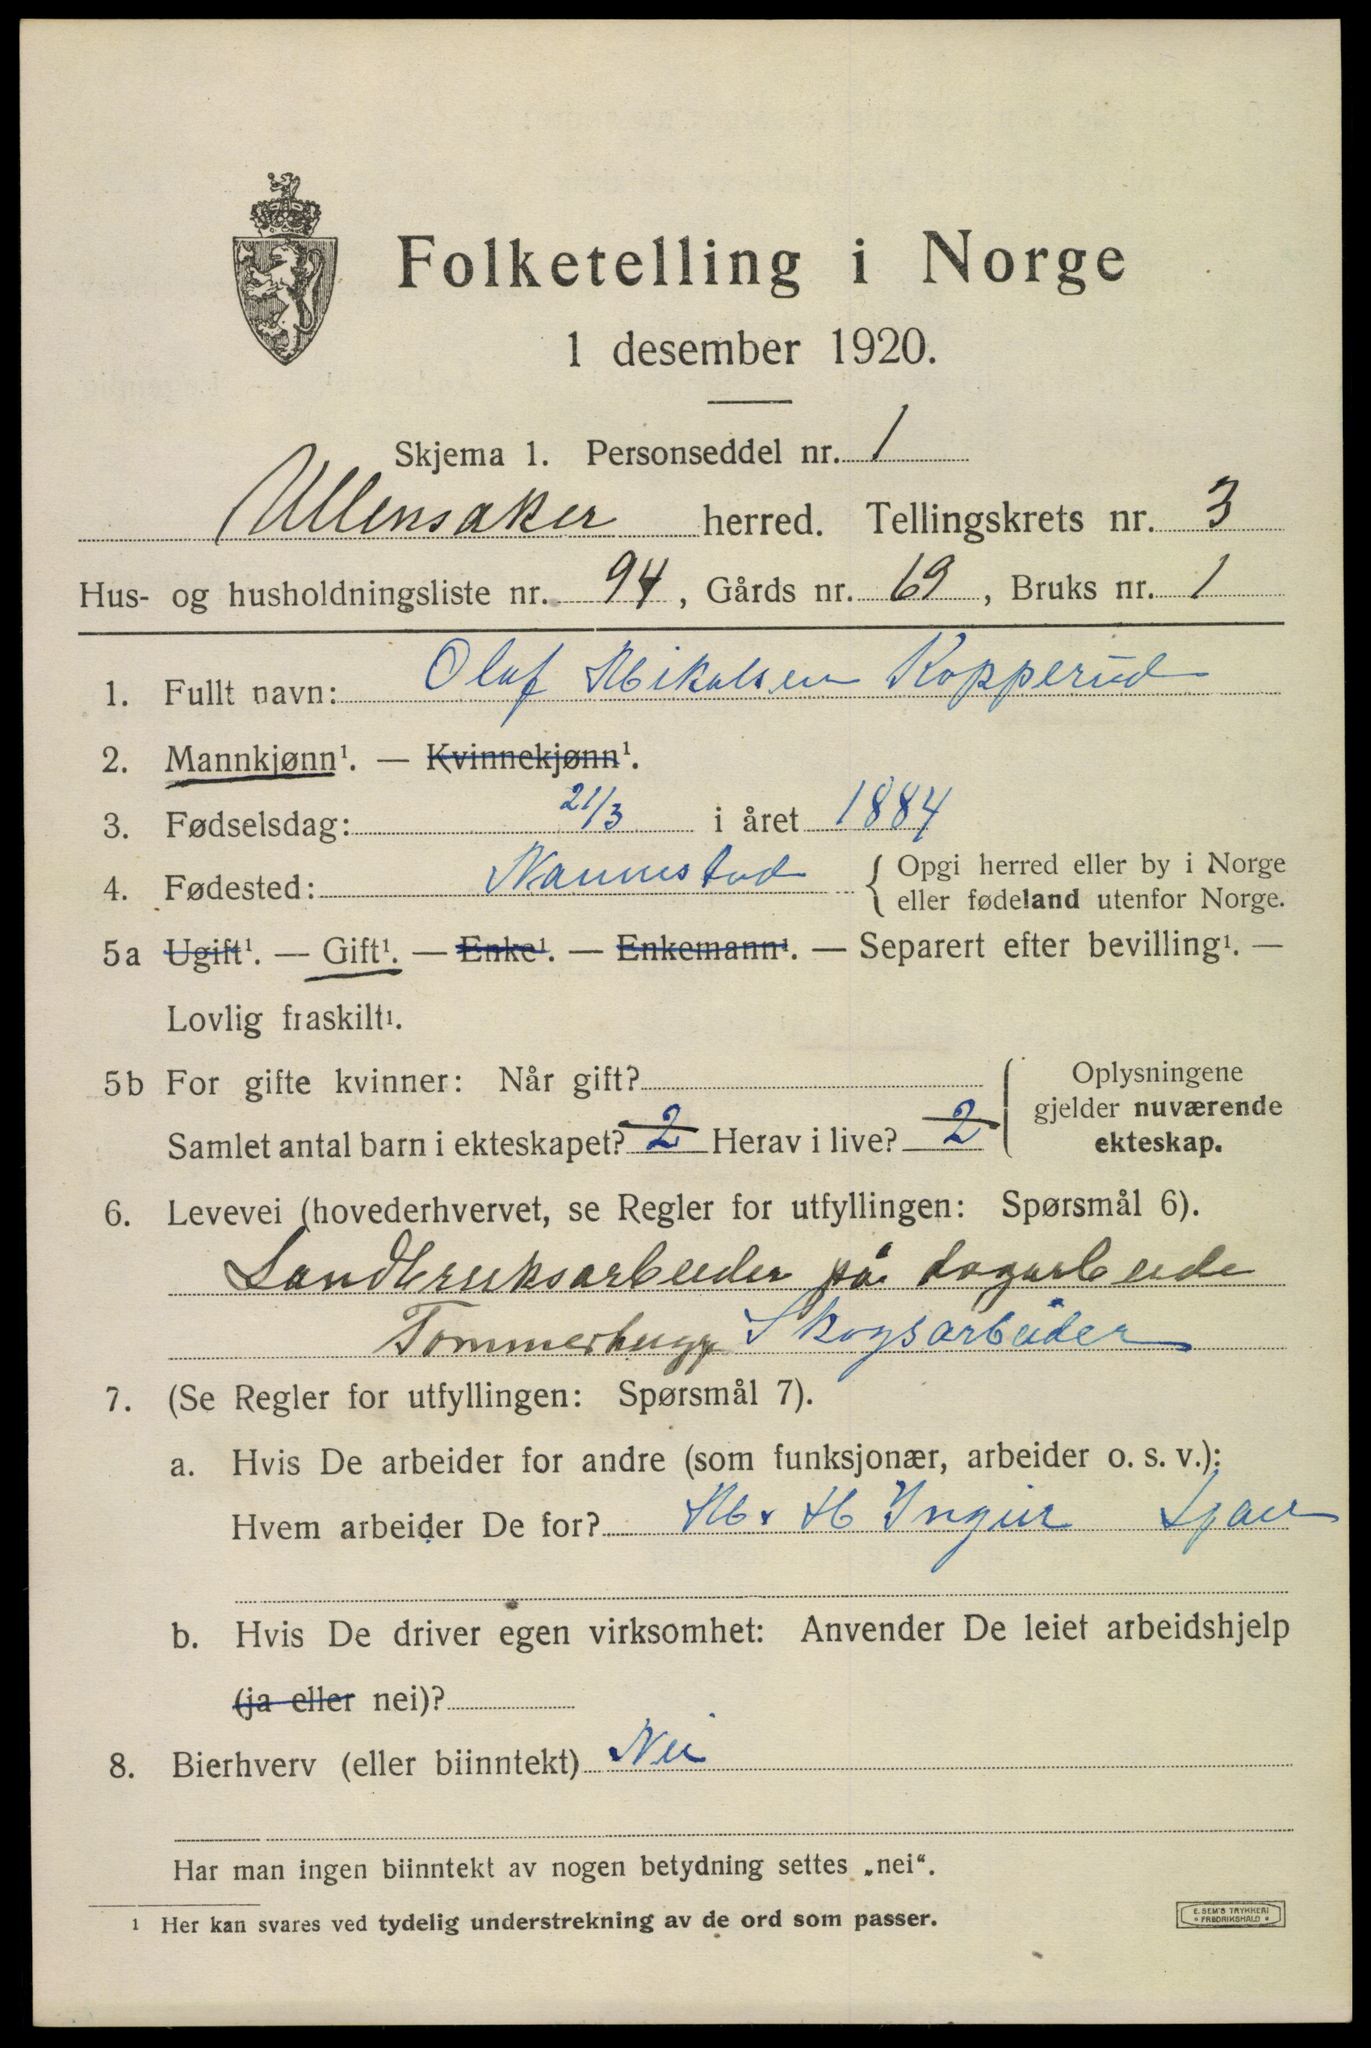 Folketelling i Norge
1 desember 1920.
Skjema 1. Personseddel nr. 1
Ullensaker herred. Tellingskrets nr. 3
Hus- og husholdningsliste nr. 94, Gårds nr. 69, Bruks nr. 1
1. Fullt navn: Olaf Mikalsen Kopperud
2. Mannkjønn¹. — Kvinnekjønn¹.
3. Fødselsdag: 21/3 i året 1884
4. Fødested: Nannestad { Opgi herred eller by i Norge
eller fødeland utenfor Norge.
5a Ugift¹. — Gift¹. — Enke¹. — Enkemann¹. — Separert efter bevilling¹. —
Lovlig fraskilt¹.
5b For gifte kvinner: Når gift?
Samlet antal barn i ekteskapet? 2 Herav i live? 2
Oplysningene
gjelder nuværende
ekteskap.
6. Levevei (hovederhvervet, se Regler for utfyllingen: Spørsmål 6).
Landbruksarbeider på dagarbeide
Tømmerhugg Skogsarbeider
7. (Se Regler for utfyllingen: Spørsmål 7).
a. Hvis De arbeider for andre (som funksjonær, arbeider o. s. v.):
Hvem arbeider De for? H
b. Hvis De driver egen virksomhet: Anvender De leiet arbeidshjelp
(ja eller nei)?
8. Bierhverv (eller biinntekt) Nei
Har man ingen biinntekt av nogen betydning settes „nei“.
¹ Her kan svares ved tydelig understrekning av de ord som passer.
E. SEM'S TRYKKERI
* FREDRIKSHALD *